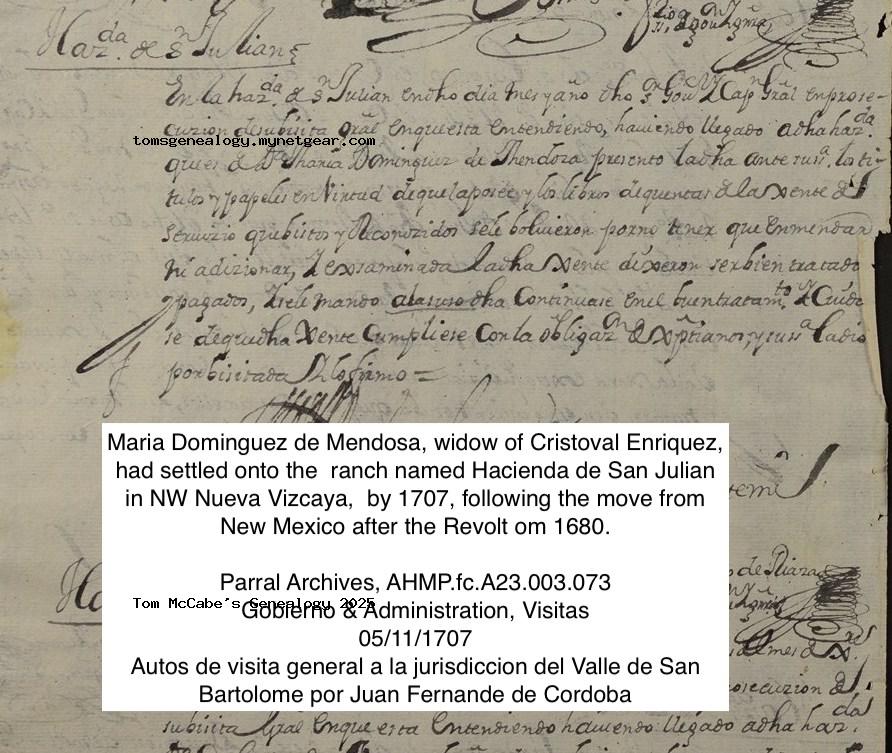 Haz.da de Sn Julian
En la haz.da de Sn Julian en dho dia mes y año dho Sr Gour y Capn Gral en prose-
cuzion desubisita Gral enque esta entendiendo, hauiendo llegado adha haz.da
tomsgenealogy.mynetgear.com
que es de Da Maria Dominguez de Mendoza presento la dha ante su sa. los ti-
tulos y papeles en Virtud de que la posee y los libros de quentas de la xente de
seruizio que bistos y Reconozidos sele boluieron por no tener que enmendar
ni adizionar, y exsaminada la dha xente dixeron ser bien tratados
y pagados, y sele mando a la suso dha Continuase en el buen tratam.to y Cuida
se de que dha xente Cumpliese Con la obligazn de xptianos, y su sa la dio
por bisitada y lo firmo =
Maria Dominguez de Mendosa, widow of Cristoval Enriquez,
had settled onto the ranch named Hacienda de San Julian
in NW Nueva Vizcaya, by 1707, following the move from
New Mexico after the Revolt om 1680.
Parral Archives, AHMP.fc.A23.003.073
Tom McCabe's Genealogy 2025
Gobierno & Administration, Visitas
05/11/1707
Autos de visita general a la jurisdiccion del Valle de San
Bartolome por Juan Fernande de Cordoba
subisita Gral Enque esta Entendiendo hauiendo llegado adha haz.da